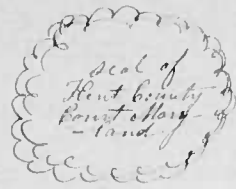 seal of
Kent County
Court Mary
-land